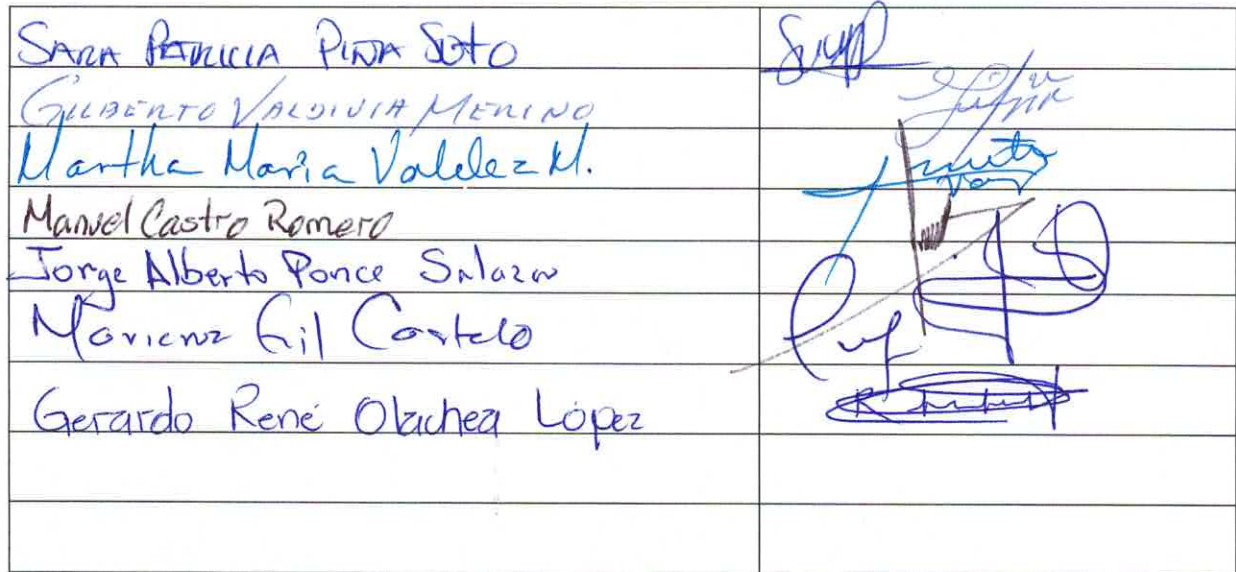 SARA PATRICIA PIÑA SOTO
GILBERTO VALDIVIA MERINO
Martha Maria Valdez M.
Manuel Castro Romero
Jorge Alberto Ponce Salazar
Mariana Gil Castelo
Gerardo René Olachea López